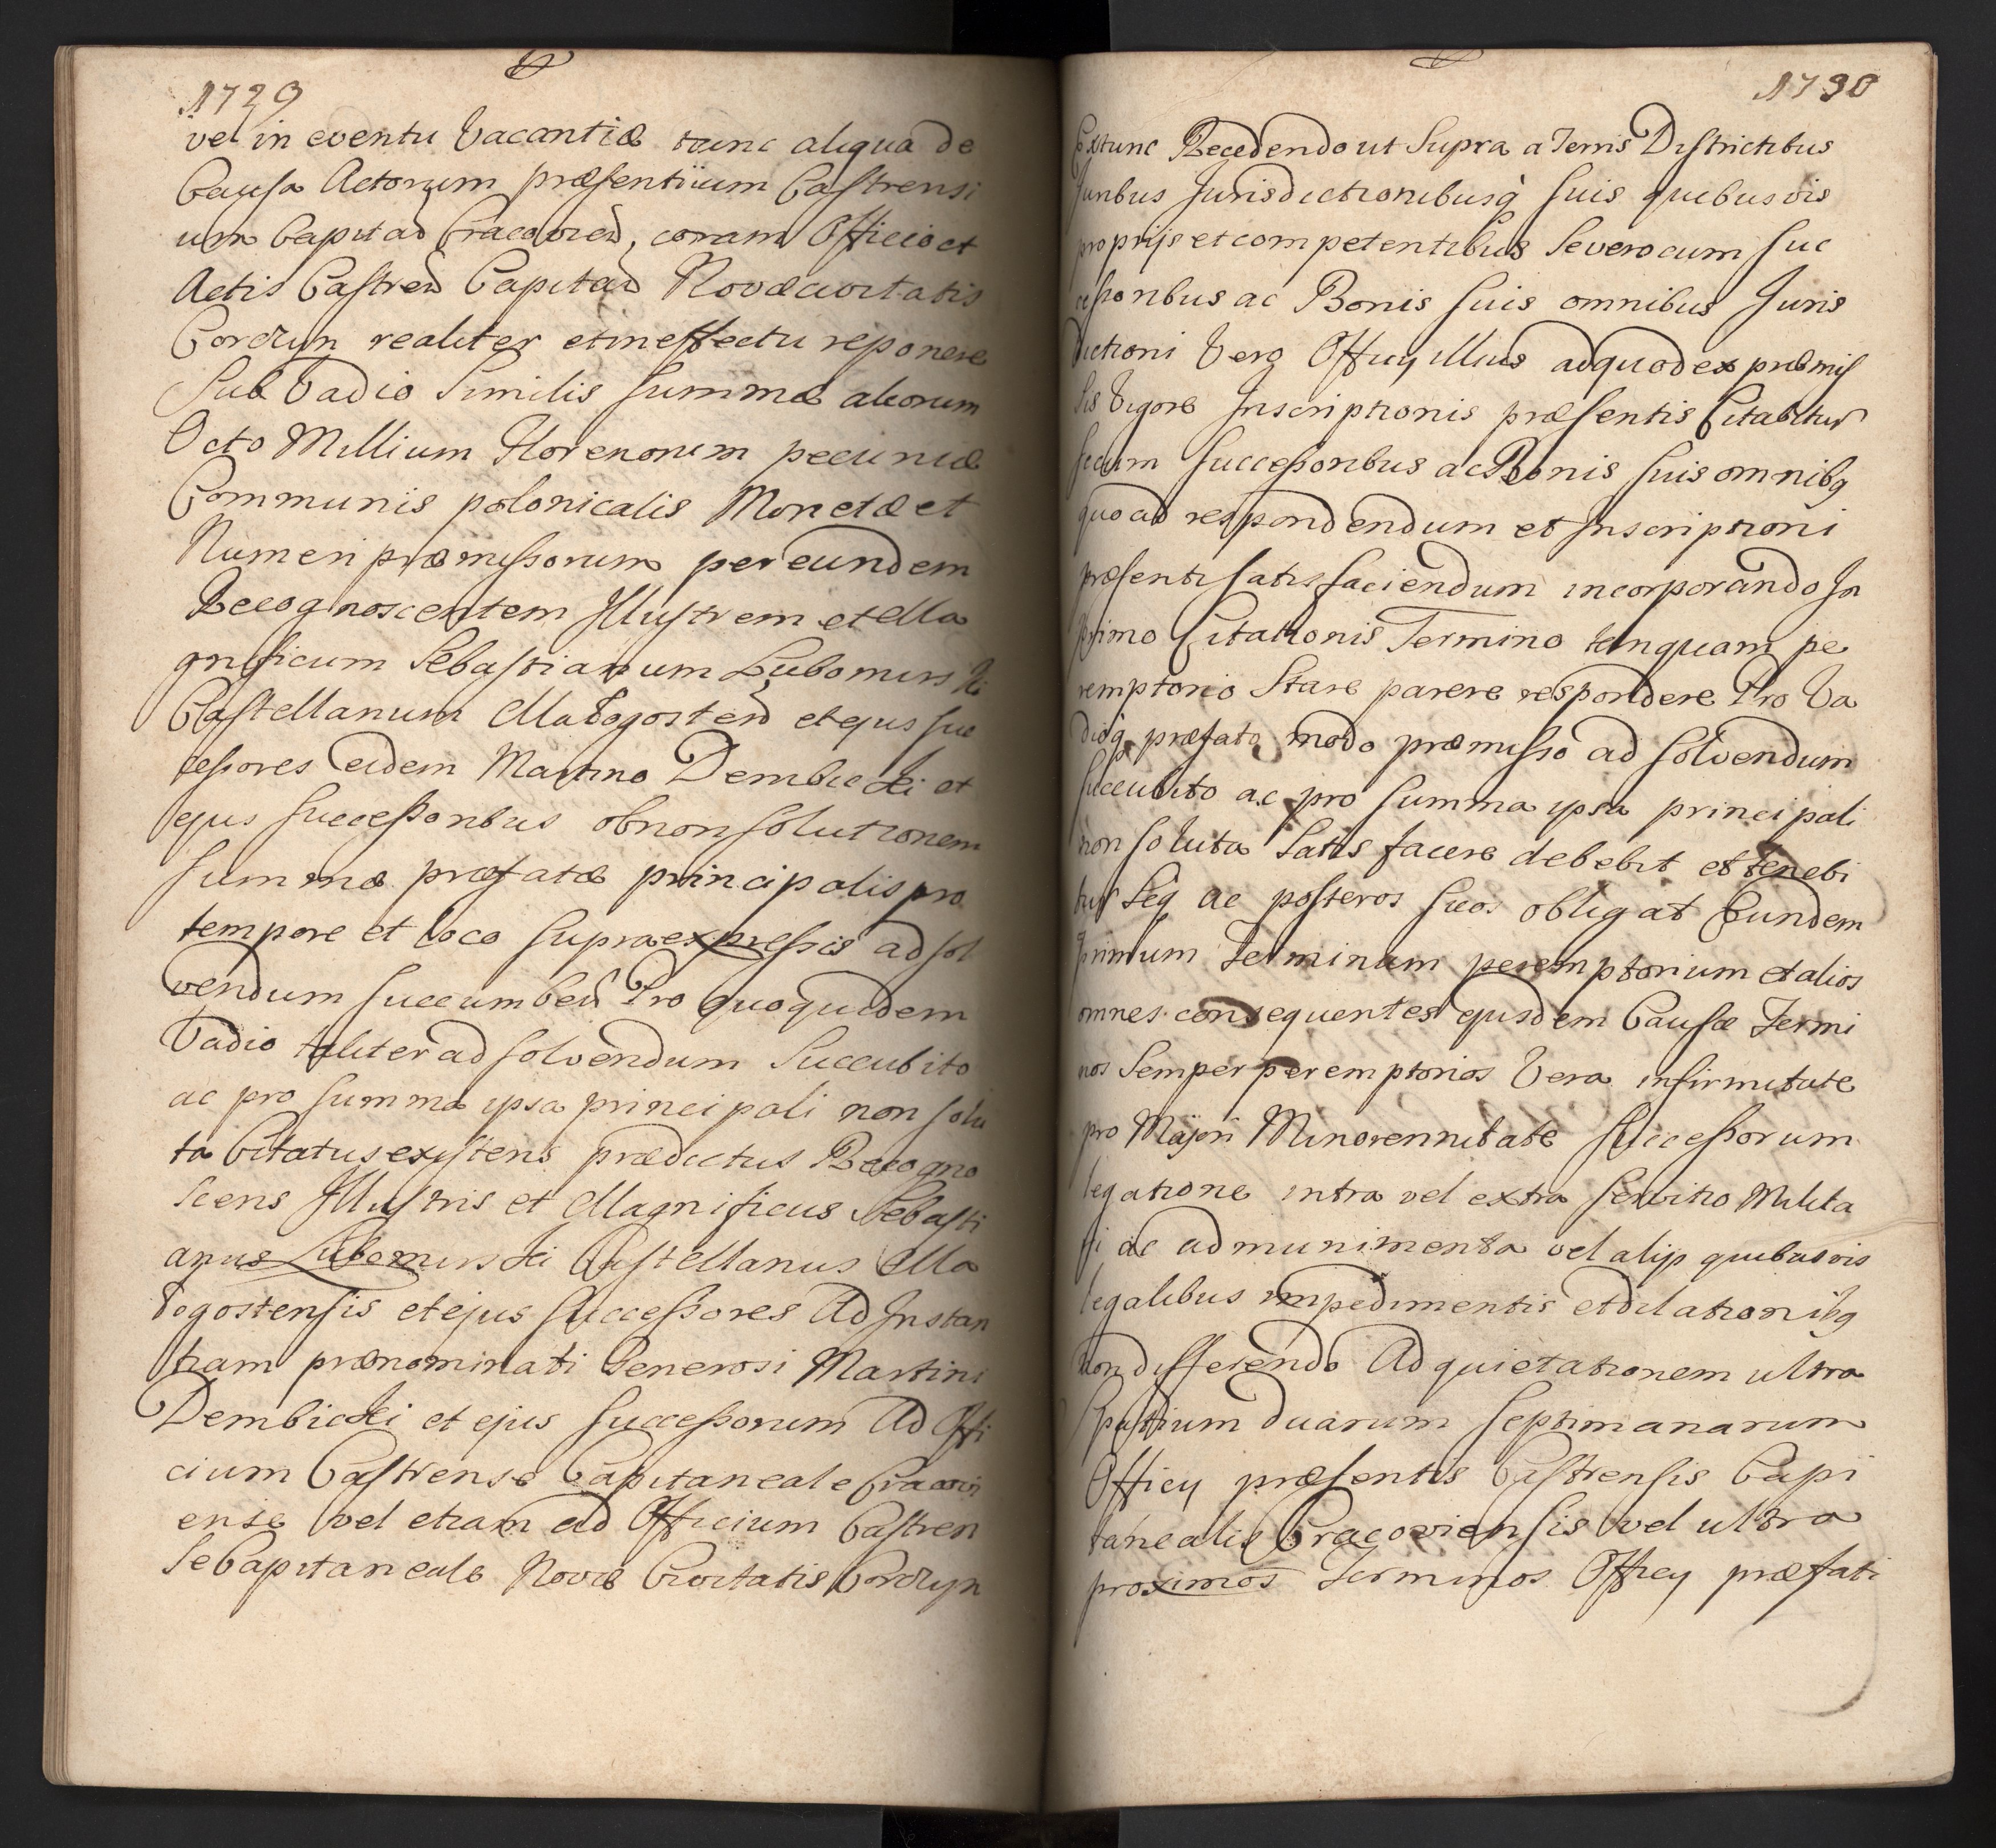 1729
vel in eventu Vacantiæ tunc aliqua de
Causa Actorum præsentiium Castrensi
um Capitad Cracovien, coram Officio et
Actis Castren Capitan Novæ civitatis
Corczyn realiter et in effectu reponere
Sub Vadio Similis summæ aliorum
Octo Millium Florenorum pecuniæ
Communis polonicalis Monetæ et
Numeri præmissorum per eundem
Recognoscentem Illustrem et Ma
gnificum Sebastianum Lubomirski
Castellanum Małogosten et ejus suc
cessores eidem Martino Dembicki et
ejus successoribus ob non solutionem
summæ præfatæ principalis pro
tempore et loco supra expressis ad sol
vendum succumben Pro quo quidem
Vadio taliter ad solvendum Succubito
ac pro summa ipsa principali non solu
ta Citatus existens prædictus Recogno
scens Illustris et Magnificus Sebasti
anus Lubomirski Castellanus Ma
łogostensis et ejus successores Ad Instan
tiam prænominati Generosi Martini
Dembicki et ejus successorum Ad Offi
cium Castrense Capitaneale Cracovi
ense vel etiam ad Officium Castren
se Capitaneale Novæ Civitatis Corczyn
1730
Extunc Recedendo ut Supra a Terris Districtibus
Juribus Jurisdictionibusq suis quibusvis
proprijs et competentibus Se vero cum suc
cessoribus ac Bonis suis omnibus Juris
dictioni Vero Officij illius ad quod ex præmis
sis Vigore Inscriptionis præsentis Citabitur
secum successoribus ac Bonis suis omnibq
quo ad respondendum et Inscriptioni
præsenti satisfaciendum incorporando In
primo Citationis Termino tanquam pe
remptorio Stare parere respondere Pro Va
dioq præfato modo præmisso ad solvendum
succubito ac pro summa ipsa principali
non soluta Satis facere debebit et tenebi
tur Seq ac posteros suos obligat Eundem
primum Terminum peremptorium et alios
omnes consequentes ejusdem Causæ Termi
nos Semper peremptorios Vera infirmitate
pro Majori Minorennitate successorum
legatione intra vel extra servitio Milita
ri ac ad munimenta vel alijs quibusvis
legalibus impedimentis et dilationibq
non differendo Ad quietationem ultra
spatium duarum septimanarum
Officij præsentis Castrensis Capi
tanealis Cracoviensis vel ultra
proximos Terminos Officij præfati